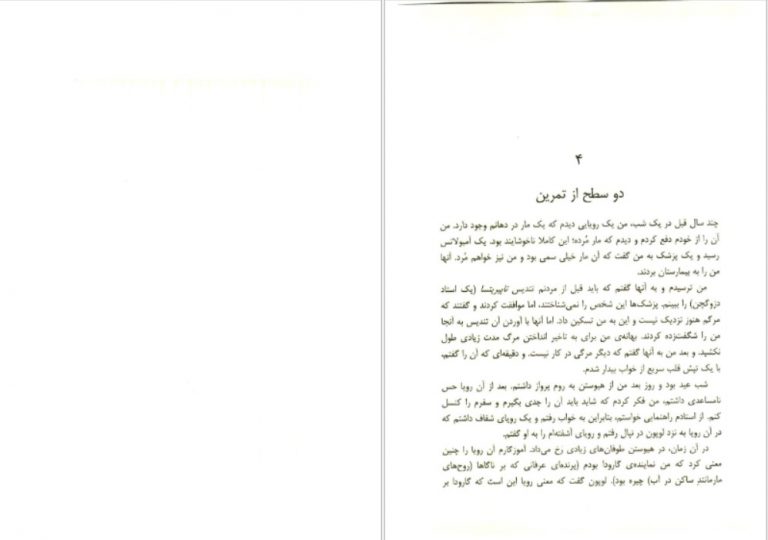 ۴
دو سطح از تمرین
چند سال قبل در یک شب، من یک رویایی دیدم که یک مار در دهانم وجود دارد. من
آن را از خودم دفع کردم و دیدم که مار مُرده؛ این کاملا ناخوشایند بود. یک آمبولانس
رسید و یک پزشک به من گفت که آن مار خیلی سمی بود و من نیز خواهم مُرد. آنها
من را به بیمارستان بردند.
من ترسیدم و به آنها گفتم که باید قبل از مردنم تندیس تاپیریتسا (یک استاد
دزوگچن) را ببینم. پزشک‌ها این شخص را نمی‌شناختند، اما موافقت کردند و گفتند که
مرگم هنوز نزدیک نیست و این به من تسکین داد. اما آنها با آوردن آن تندیس به آنجا
من را شگفت‌زده کردند. بهانه‌ی من برای به تاخیر انداختن مرگ مدت زیادی طول
نکشید. و بعد من به آنها گفتم که دیگر مرگی در کار نیست. و دقیقه‌ای که آن را گفتم،
با یک تپش قلب سریع از خواب بیدار شدم.
شب عید بود و روز بعد من از هیوستن به روم پرواز داشتم. بعد از آن رویا حس
نامساعدی داشتم، من فکر کردم که شاید باید آن را جدی بگیرم و سفرم را کنسل
کنم. از استادم راهنمایی خواستم، بنابراین به خواب رفتم و یک رویای شفاف داشتم که
در آن رویا به نزد لوپون در نپال رفتم و رویای آشفته‌ام را به او گفتم.
در آن زمان، در هیوستن طوفان‌های زیادی رخ می‌داد. آموزگارم آن رویا را چنین
معنی کرد که من نماینده‌ی گارودا بودم (پرنده‌ای عرفانی که بر ناگاها (روح‌های
مارمانند ساکن در آب) چیره بود). لوپون گفت که معنی رویا این است که گارودا بر